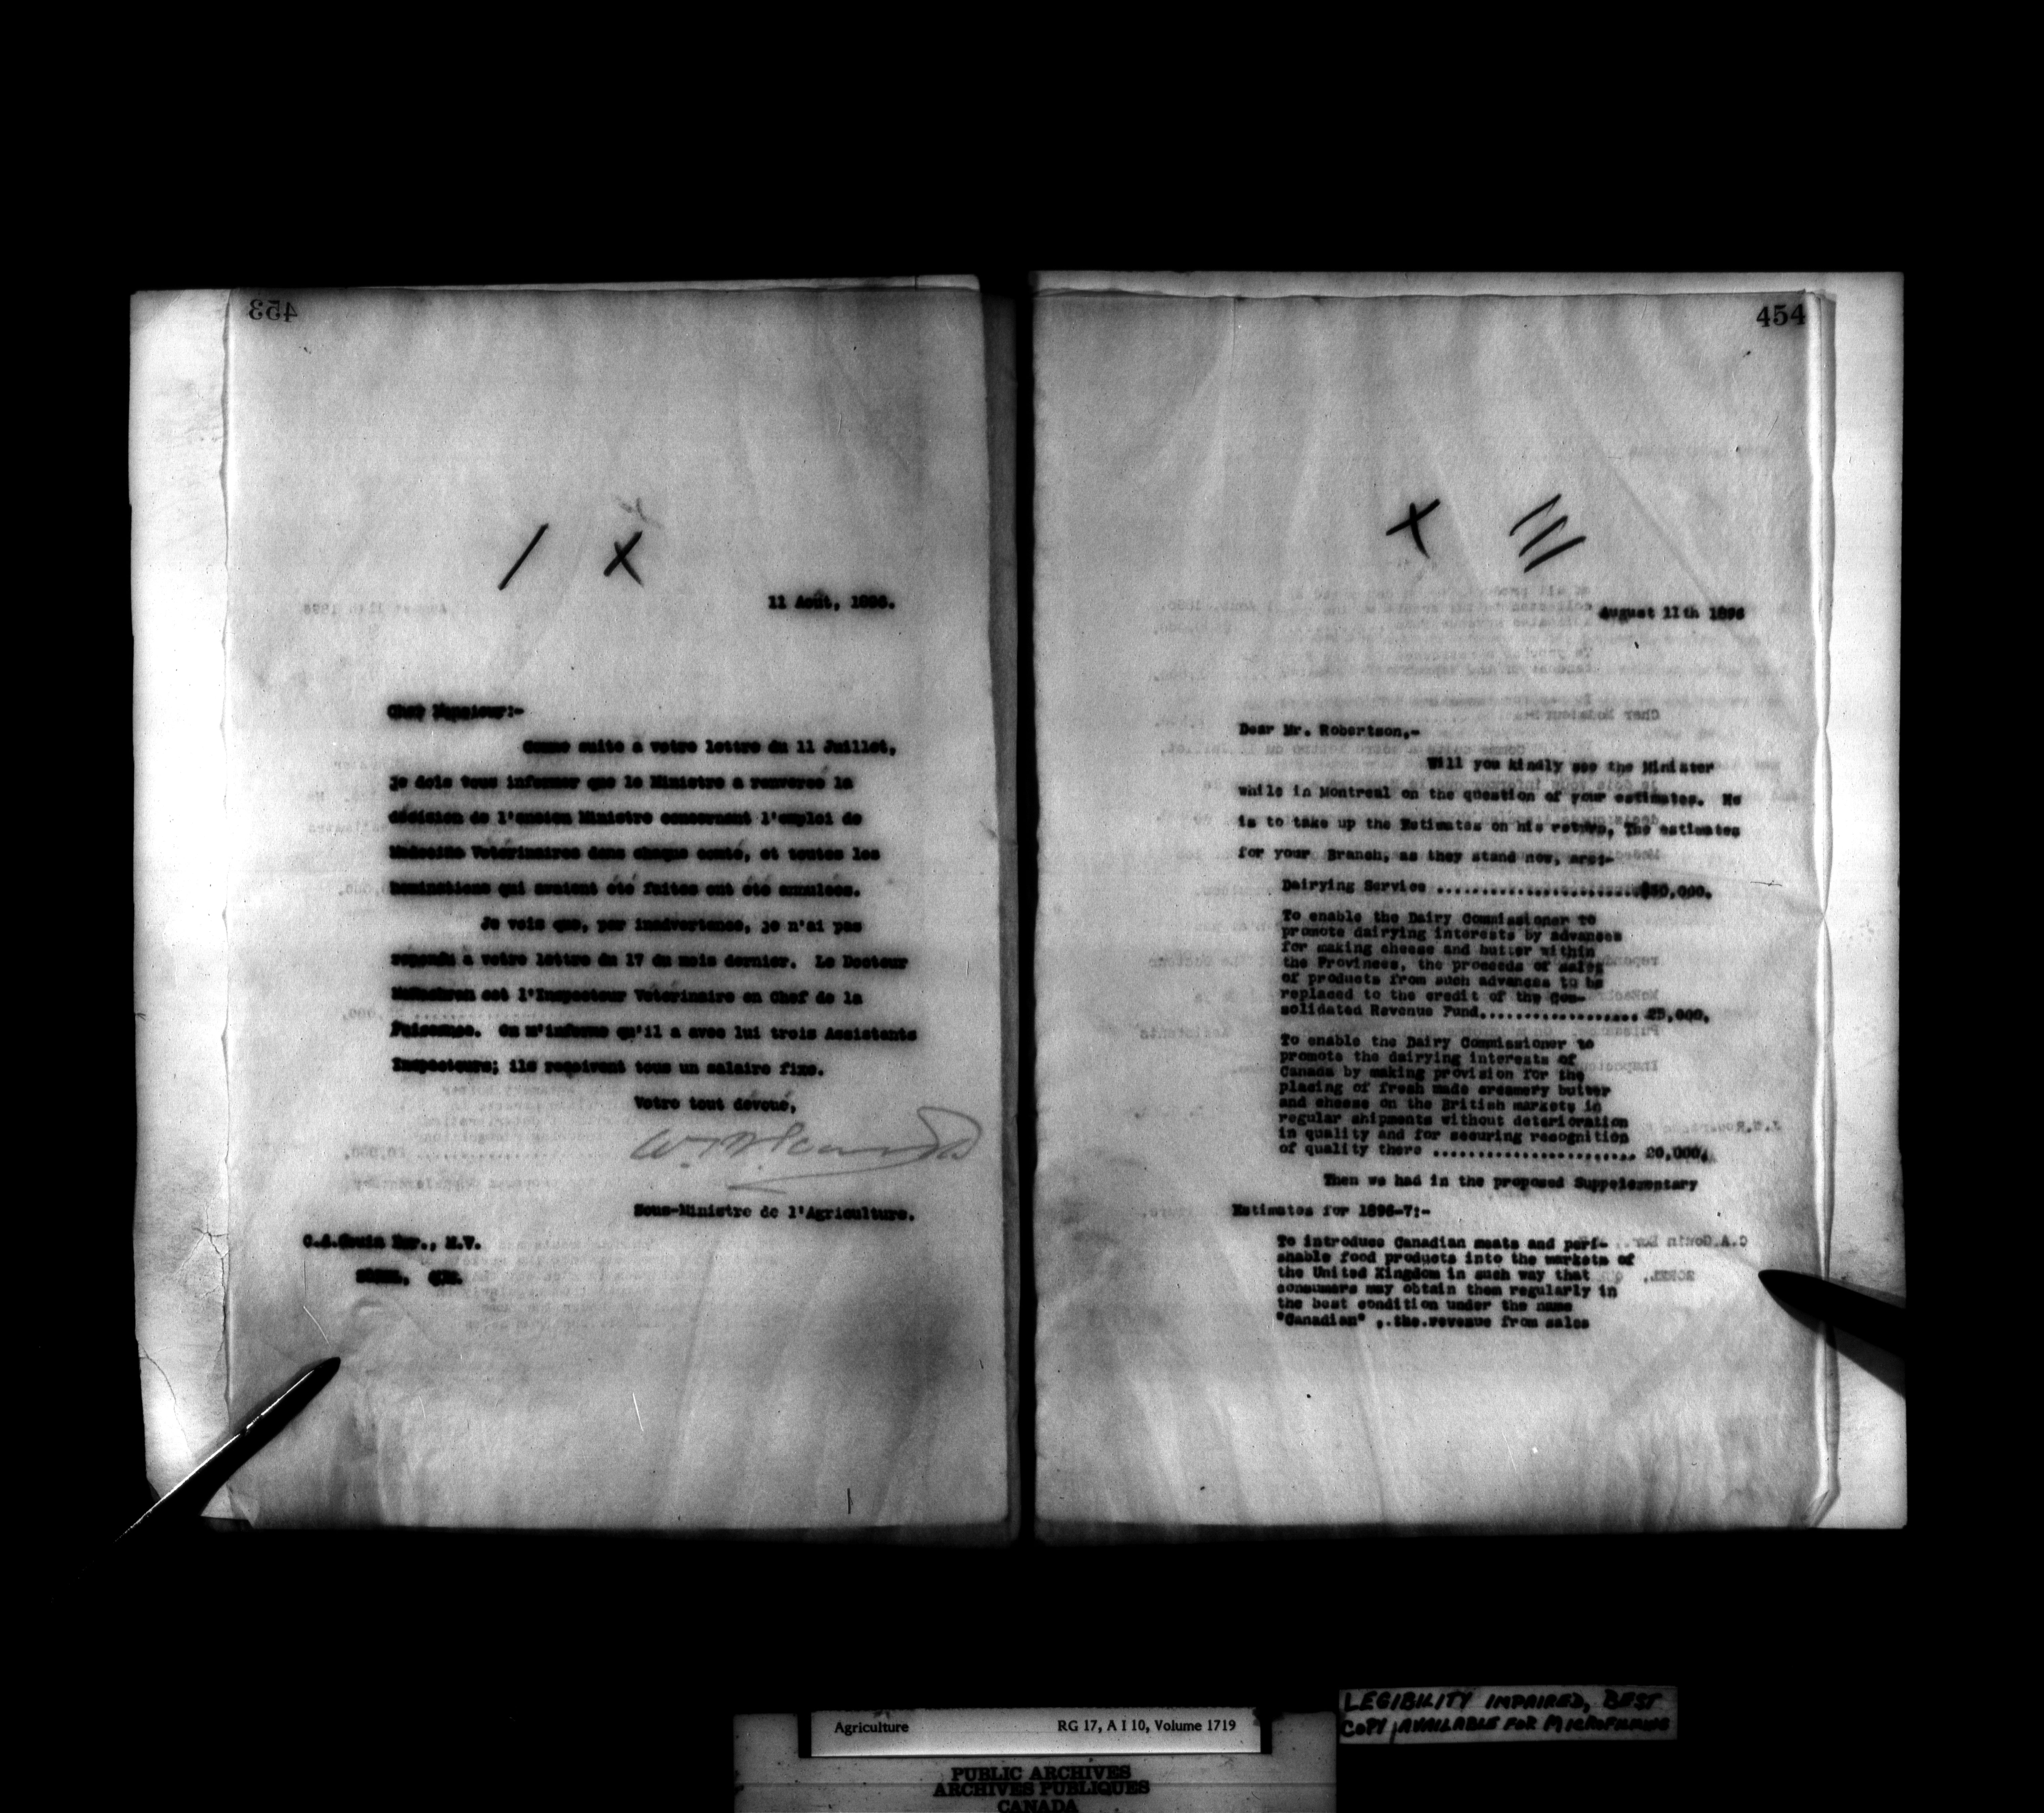 453
11 Août, 1896.
Cher Monsieur:-
Comme suite a votre lettre du 11 Juillet,
je dois vous informer que le Ministre a renversé la
décision de l'ancien Ministre concernant l'emploi de
Médecins Vétérinaires dans chaque comté, et toutes les
nominations qui avaient été faites ont été annulées.
Je vois que, par inadvertance, je n'ai pas
repondu a votre lettre du 17 du mois dernier. Le Docteur
McEachran est l'Inspecteur Vétérinaire en Chef de la
Puissance. On m'informe qu'il a avec lui trois Assistants
Inspecteurs; ils reçoivent tous un salaire fixe.
Votre tout dévoué,
Sous-Ministre de l'Agriculture.
C.A.Gouin Eur., M.V.
SOREL, QUE.
454
August 11th 1896
Dear Mr. Robertson,-
Will you kindly see the Minister
while in Montreal on the question of your estimates. He
is to take up the Estimates on his return. The estimates
for your Branch, as they stand now, are:-
Dairying Service ........................$30,000.
To enable the Dairy Commissioner to
promote dairying interests by advances
for making cheese and butter within
the Provinces, the proceeds of sales
of products from such advances to be
replaced to the credit of the Con-
solidated Revenue Fund................... 25,000.
To enable the Dairy Commissioner to
promote the dairying interests of
Canada by making provision for the
placing of fresh made creamery butter
and cheese on the British markets in
regular shipments without deterioration
in quality and for securing recognition
of quality there ........................ 20,000.
Then we had in the proposed Supplementary
Estimates for 1896-7:-
To introduce Canadian meats and peri-
shable food products into the markets of
the United Kingdom in such way that
consumers may obtain them regularly in
the best condition under the name
"Canadian" ,.the.revenue from sales
Agriculture RG 17, A I 10, Volume 1719
LEGIBILITY IMPAIRED, BEST
COPY AVAILABLE FOR MICROFILMING
PUBLIC ARCHIVES
ARCHIVES PUBLIQUES
CANADA